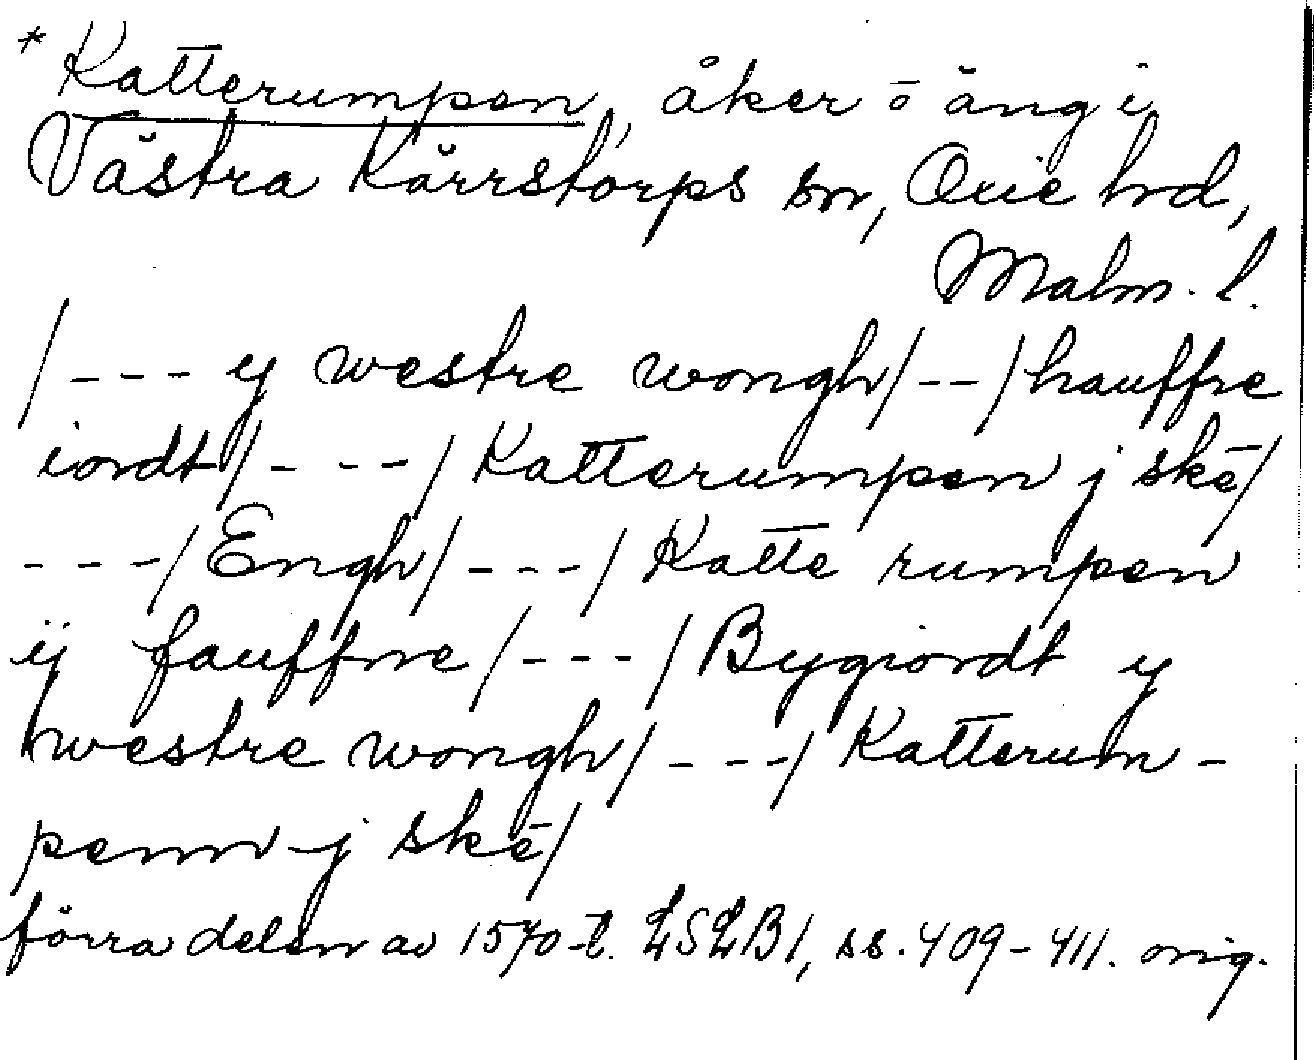 * Katterumpen, åker o äng i
Västra Kärrstorps sn, Oxie hrd,
Malm. l.
/--- y westre wongh/--/hauffre
iordt/----/Katterumpen j skē/
---/Engh/---/Katte rumpen
ij fauffne/---/Bygiordt y
westre wongh/---/Katterum-
penn j skē/
förra delen av 1570-t. LSLB1, ss. 409-411. orig.